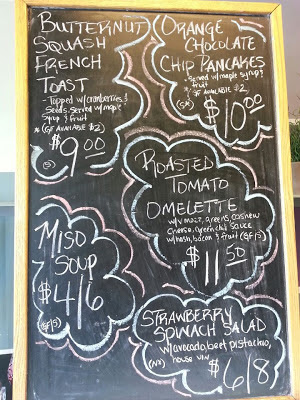 BUTTERNUT
SQUASH
FRENCH
TOAST
- Topped w/cranberries &
seeds, served w/maple
syrup & fruit
* (GF AVAILABLE $2)
(S)
$9.00
ORANGE
CHOCOLATE
CHIP PANCAKES
- served w/maple syrup &
fruit
* (GF AVAILABLE $2)
$10.00
ROASTED
TOMATO
OMELETTE
w/ greens, cashew
cheese, green chili sauce
w/hash, bacon & fruit (GF/S)
$11.50
MISO
SOUP
$4/6
(GF/S)
STRAWBERRY
SPINACH SALAD
w/avocado, beet, pistachio,
house vin
$6/8